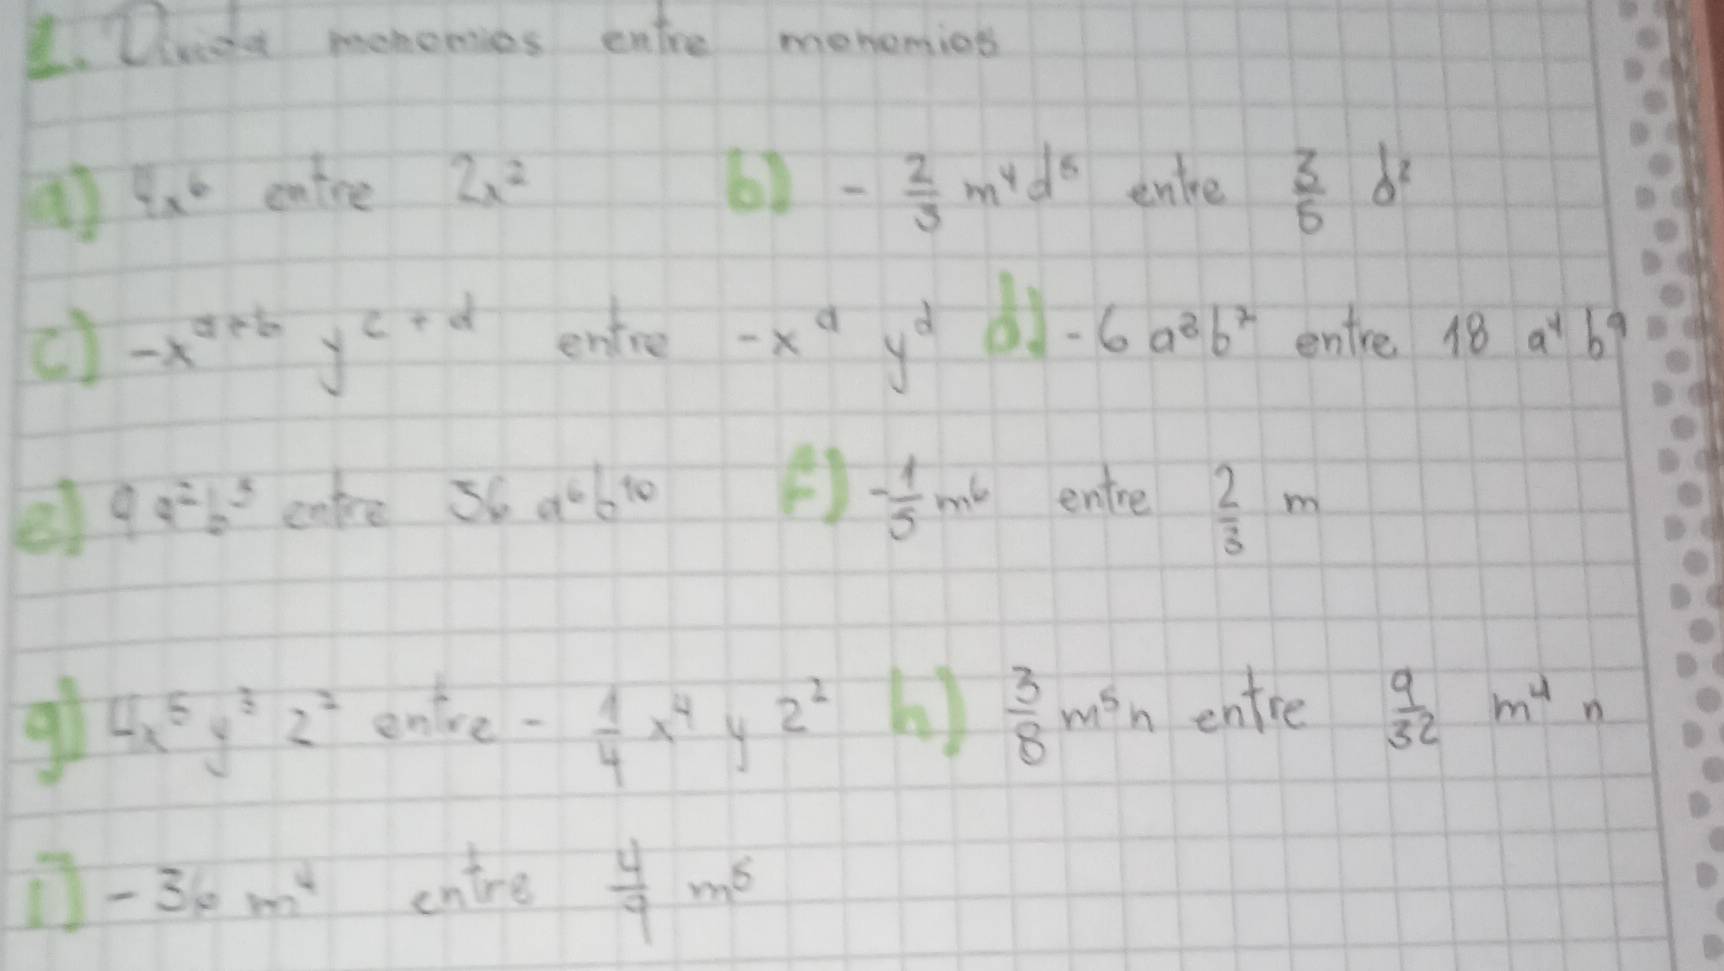 1. Divida monomios entre monomios
a) 4x⁶ entre 2x² b) - 2/3 m⁴d⁵ entre 3/5 d²
c) -xᵃ⁺ᵇ yᶜ⁺ᵈ entre -xᵃ yᵈ d) -6 a³b² entre 18 a⁴ b⁹
e) 9 a²b⁵ entre 36 a⁶b¹⁰ F) -1/5 m⁶ entre 2/3 m
g) 4x⁵ y³ z² entre - 1/4 x⁴ y z² h) 3/8 m⁵n entre 9/32 m⁴ n
i) -36 m⁴ entre 4/9 m⁵